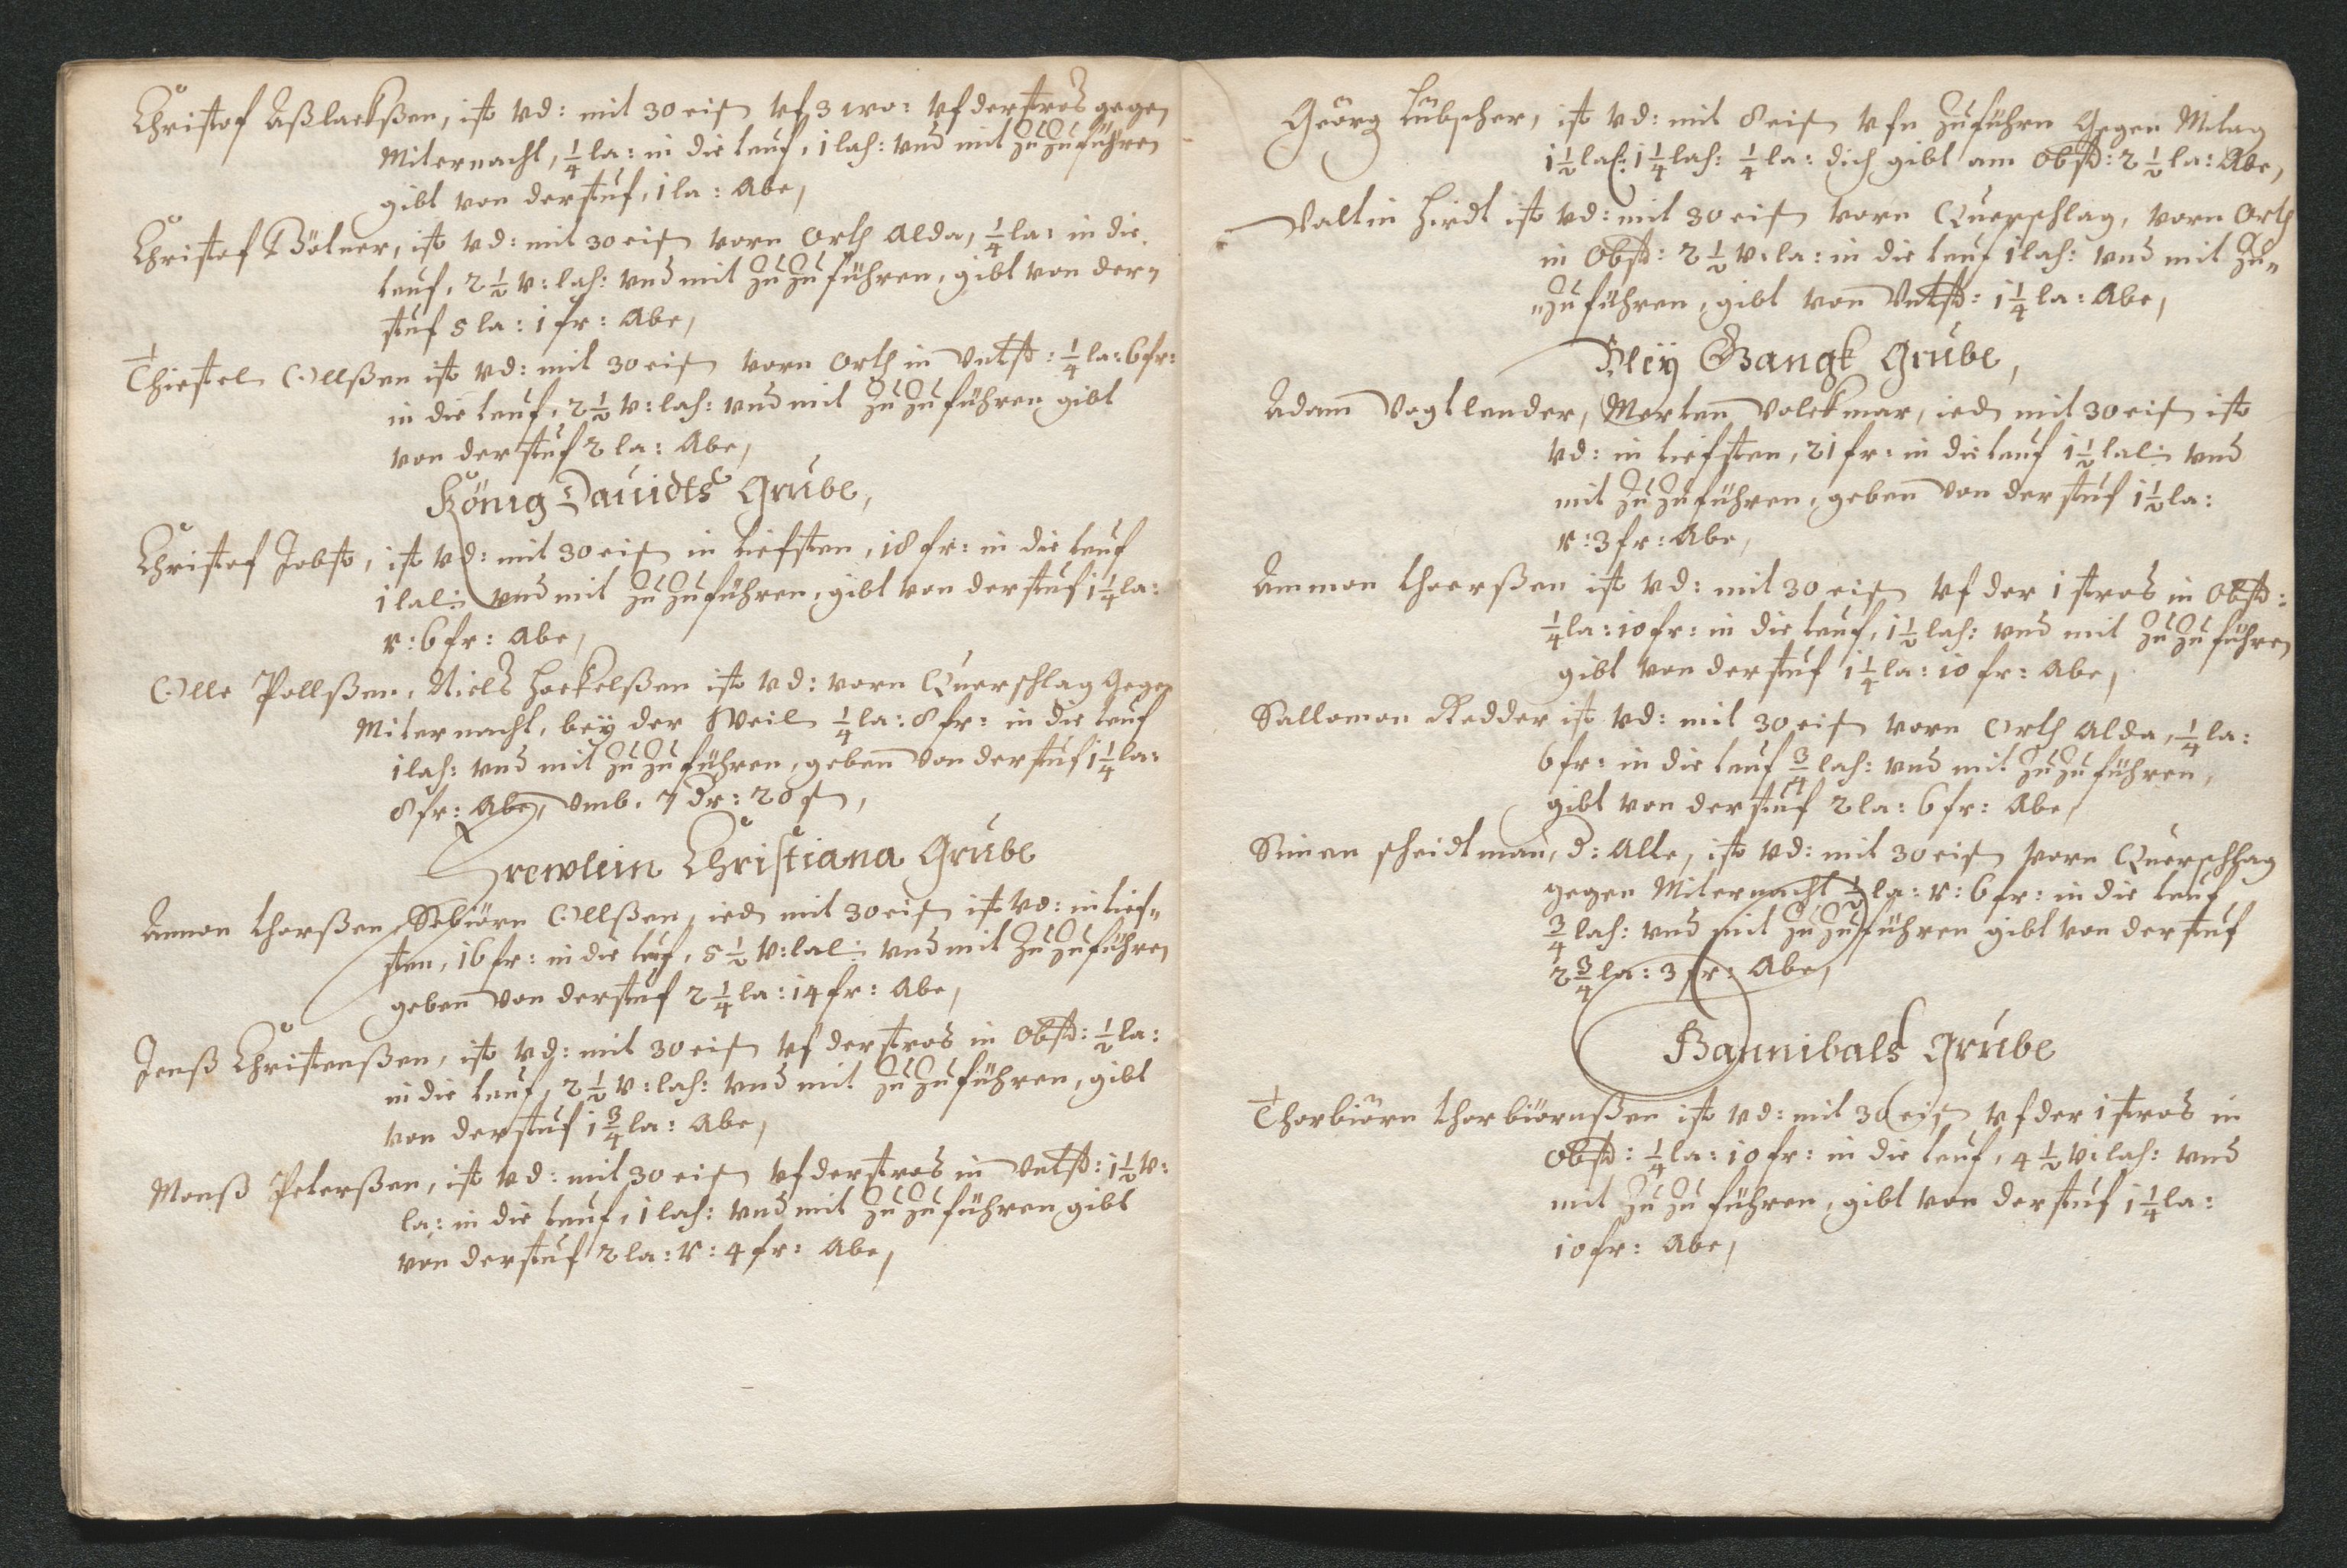 Christof Aßlackßen, ist vd: mit 30 eisn vf 3 wo: vf der stros gegen
Miternacht, 1/4 la: in die teuf, 1 lach: vnd mit Zu Zuführen
gibt von der stuf, 1 la: Abe,
Christof Bötner, ist vd: mit 30 eisn vorn Orth Alda, 1/4 la: in die
teuf, 2 1/2 v: lach: vnd mit Zu Zuführen, gibt von der
stuf 5 la: 1 fr: Abe,
Thiestel Ollßen ist vd: mit 30 eisn vorn Orth in Vntst: 1/4 la: 6 fr:
in die teuf, 2 1/2 v: lach: vnd mit Zu Zuführen gibt
von der stuf 2 la: Abe,
König Dauidts Grube,
Christof Jobst, ist vd: mit 30 eisn in tiefsten, 18 fr: in die teuf
1 lal: vnd mit Zu Zuführen, gibt von der stuf 1 1/4 la:
v: 6 fr: Abe,
Olle Pollßen, Niels Hoekelßen ist vd: vorn Querschlag Gegen
Miternacht, beÿ der Weil 1/4 la: 8 fr: in die teuf
1 lach: vnd mit Zu Zuführen, geben von der stuf 1 1/4 la:
8 fr: Abe, vmb. 7 dr: 20 s,
Frewlein Christiana Grube
Ammon thorßen, Sebiörn Ollßen, ied mit 30 eisn ist vd: in tief-
sten, 16 fr: in die teuf, 5 1/2 v: lal: vnd mit Zu Zuführen
geben von der stuf 2 1/4 la: 14 fr: Abe,
Jenß Christenßen, ist vd: mit 30 eisn vf der stros in Obst: 1/2 la:
in die teuf, 2 1/2 v: lach: vnd mit Zu Zuführen, gibt
von der stuf 1 3/4 la: Abe,
Monß Peterßen, ist vd: mit 30 eisn vf der stros in Vntst: 1 1/2 v:
la: in die teuf, 1 lach: vnd mit Zu Zuführen gibt
von der stuf 2 la: v: 4 fr: Abe,
Geörg Lübscher, ist vd: mit 8 eisn vfn Zuführn Gegen Mitag
1 1/2 lach: 1 1/4 lach: 1/4 la: dich gibt am Obst: 2 1/2 la: Abe,
Valtin Hirdt ist vd: mit 30 eisn vorn Querschlag, vorn Orth
in Obst: 2 1/2 v: la: in die teuf 1 lach: vnd mit Zu-
Zuführen, gibt von Vntst: 1 1/4 la: Abe,
Bleÿ Gangk Grube,
Adam Vogtlender, Merten Volckmar, ied mit 30 eisn ist
vd: in tiefsten, 21 fr: in die teuf 1 1/2 lal: vnd
mit Zu Zuführen, geben von der stuf 1 1/2 la:
v: 3 fr: Abe,
Ammon thoerßen ist vd: mit 30 eisn vf der 1 stros in Obst:
1/4 la: 10 fr: in die teuf, 1 1/2 lach: vnd mit Zu Zuführen
gibt von der stuf 1 1/4 la: 10 fr: Abe,
Sallomon Redder ist vd: mit 30 eisn vorn Orth Alda, 1/4 la:
6 fr: in die teuf 3/4 lach: vnd mit Zu Zuführen,
gibt von der stuf 2 la: 6 fr: Abe,
Simen scheidtman, d: Alte, ist vd: mit 30 eisn vorn Querschlag
gegen Miternacht 1/2 la: v: 6 fr: in die teuf
3/4 lach: vnd mit Zu Zuführen gibt von der stuf
2 3/4 la: 3 fr: Abe,
Hannibals Grube
Thorbiörn thorbiörnßen ist vd: mit 30 eisn vf der 1 stros in
Obst: 1/4 la: 10 fr: in die teuf, 4 1/2 v: lach: vnd
mit Zu Zuführen, gibt von der stuf 1 1/4 la:
10 fr: Abe,